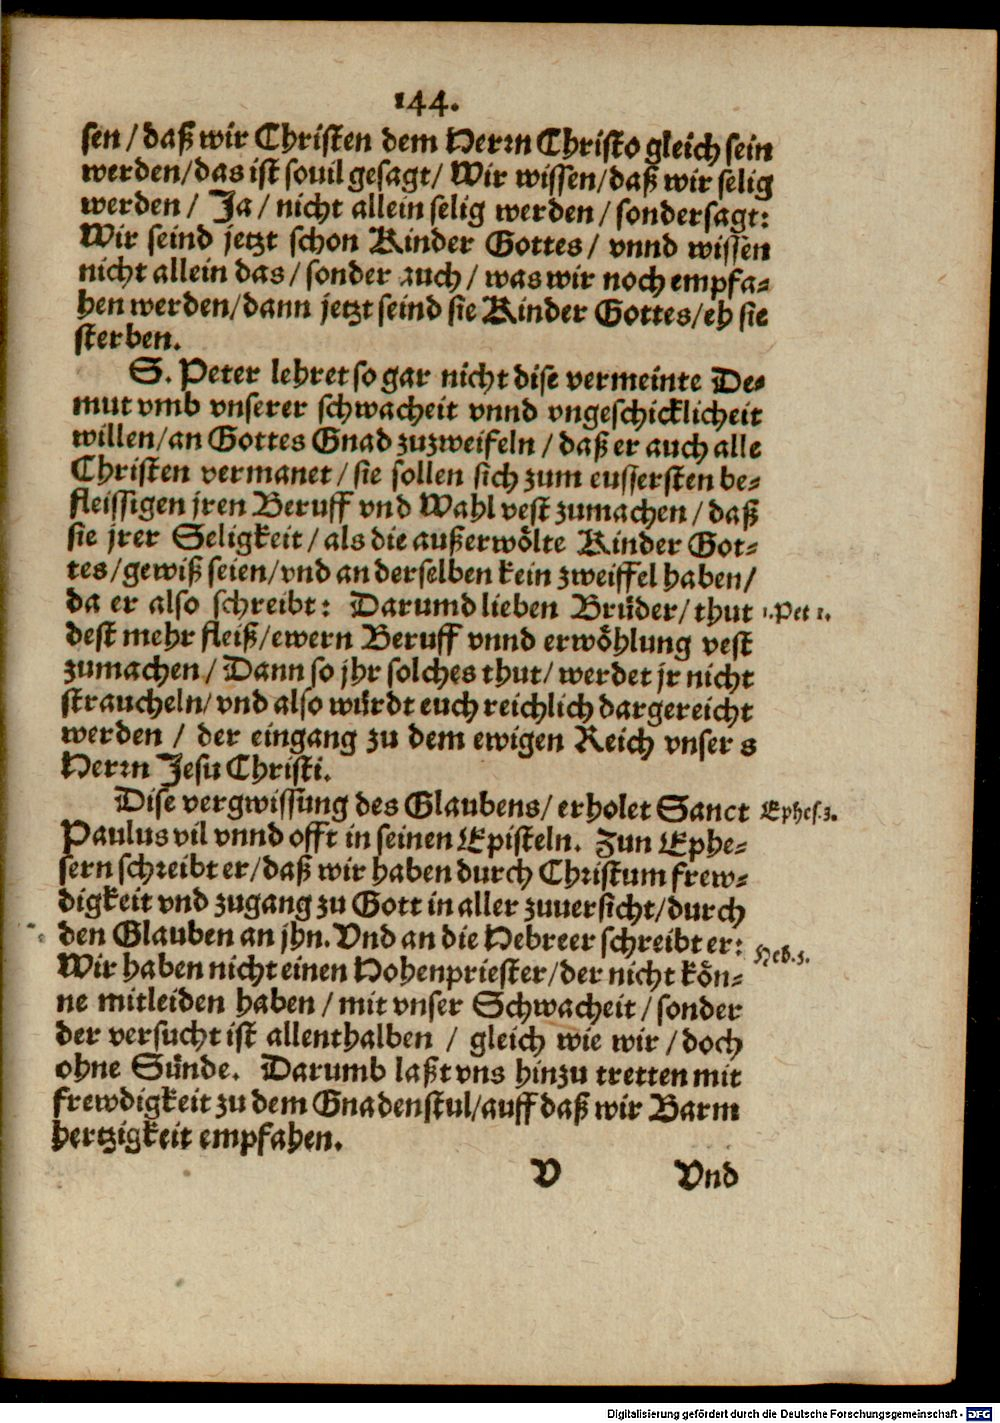 144.
sen / daß wir Christen dem Herrn Christo gleich sein
werden/das ist souil gesagt/ Wir wissen/daß wir selig
werden / Ja / nicht allein selig werden / sonder sagt:
Wir seind jetzt schon Kinder Gottes / vnnd wissen
nicht allein das / sonder auch / was wir noch empfa-
hen werden/dann jetzt seind sie Kinder Gottes/eh sie
sterben.
S. Peter lehret so gar nicht dise vermeinte De-
mut vmb vnserer schwacheit vnnd vngeschicklicheit
willen/an Gottes Gnad zuzweifeln / daß er auch alle
Christen vermanet / sie sollen sich zum eussersten be-
fleissigen jren Beruff vnd Wahl vest zumachen / daß
sie jrer Seligkeit / als die außerwölte Kinder Got-
tes/gewiß seien/vnd an derselben kein zweiffel haben/
da er also schreibt: Darumb lieben Brüder/ thut 1.Pet 1.
dest mehr fleiß/ewern Beruff vnnd erwöhlung vest
zumachen / Dann so jhr solches thut/ werdet jr nicht
straucheln/ vnd also würdt euch reichlich dargereicht
werden / der eingang zu dem ewigen Reich vnser s
Herrn Jesu Christi.
Dise vergwissung des Glaubens/ erholet Sanct Ephes.3.
Paulus vil vnnd offt in seinen Episteln. Zun Ephe-
sern schreibt er/daß wir haben durch Christum frew-
digkeit vnd zugang zu Gott in aller zuuersicht/durch
den Glauben an jhn. Vnd an die Hebreer schreibt er: Heb.5.
Wir haben nicht einen Hohenpriester/der nicht kön-
ne mitleiden haben / mit vnser Schwacheit / sonder
der versucht ist allenthalben / gleich wie wir / doch
ohne Sünde. Darumb laßt vns hinzu tretten mit
frewdigkeit zu dem Gnadenstul/auff daß wir Barm
hertzigkeit empfahen.
V Vnd
Digitalisierung gefördert durch die Deutsche Forschungsgemeinschaft - DFG